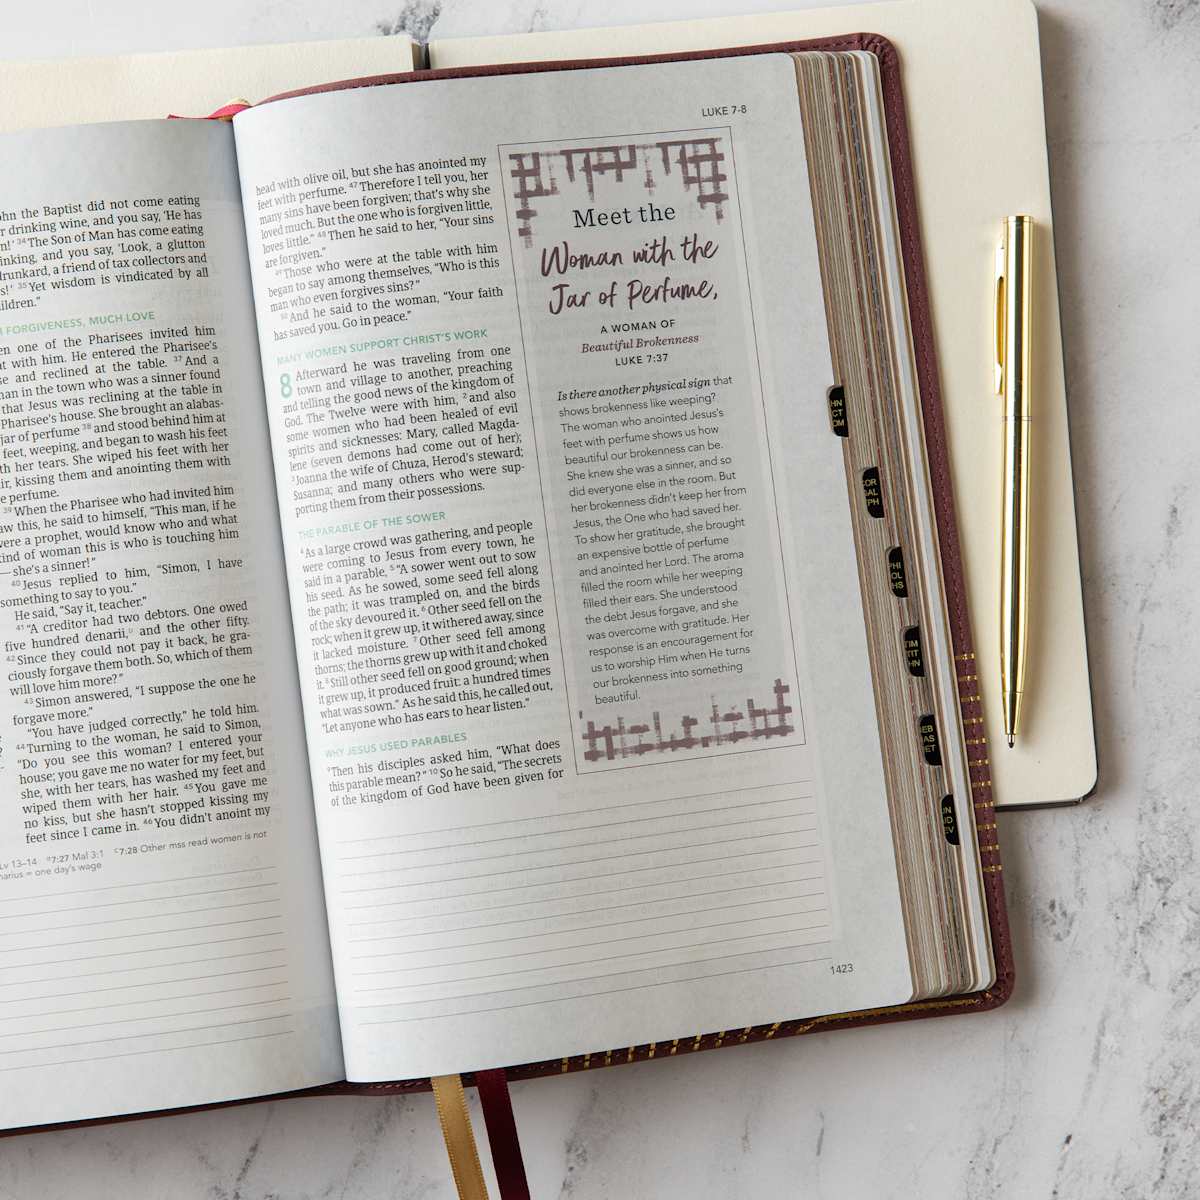 ohn the Baptist did not come eating
r drinking wine, and you say, 'He has
n!' 34 The Son of Man has come eating
inking, and you say, 'Look, a glutton
drunkard, a friend of tax collectors and
s!' 35 Yet wisdom is vindicated by all
ildren."
FORGIVENESS, MUCH LOVE
en one of the Pharisees invited him
at with him. He entered the Pharisee's
se and reclined at the table. 37 And a
man in the town who was a sinner found
that Jesus was reclining at the table in
Pharisee's house. She brought an alabas-
jar of perfume 38 and stood behind him at
feet, weeping, and began to wash his feet
th her tears. She wiped his feet with her
ir, kissing them and anointing them with
e perfume.
39 When the Pharisee who had invited him
aw this, he said to himself, "This man, if he
were a prophet, would know who and what
kind of woman this is who is touching him
—she's a sinner!"
40 Jesus replied to him, "Simon, I have
something to say to you."
He said, "Say it, teacher."
41 "A creditor had two debtors. One owed
five hundred denarii, and the other fifty.
42 Since they could not pay it back, he gra-
ciously forgave them both. So, which of them
will love him more?"
43 Simon answered, "I suppose the one he
forgave more."
"You have judged correctly," he told him.
44 Turning to the woman, he said to Simon,
"Do you see this woman? I entered your
house; you gave me no water for my feet, but
she, with her tears, has washed my feet and
wiped them with her hair. 45 You gave me
no kiss, but she hasn't stopped kissing my
feet since I came in. 46 You didn't anoint my
Lv 13–14 7:27 Mal 3:1 7:28 Other mss read women is not
narius = one day's wage
LUKE 7-8
head with olive oil, but she has anointed my
feet with perfume. 47 Therefore I tell you, her
many sins have been forgiven; that's why she
loved much. But the one who is forgiven little,
loves little." 48 Then he said to her, "Your sins
are forgiven."
49 Those who were at the table with him
began to say among themselves, "Who is this
man who even forgives sins?"
50 And he said to the woman, "Your faith
has saved you. Go in peace."
MANY WOMEN SUPPORT CHRIST'S WORK
8 Afterward he was traveling from one
town and village to another, preaching
and telling the good news of the kingdom of
God. The Twelve were with him, 2 and also
some women who had been healed of evil
spirits and sicknesses: Mary, called Magda-
lene (seven demons had come out of her);
3 Joanna the wife of Chuza, Herod's steward;
Susanna; and many others who were sup-
porting them from their possessions.
THE PARABLE OF THE SOWER
4 As a large crowd was gathering, and people
were coming to Jesus from every town, he
said in a parable, 5 "A sower went out to sow
his seed. As he sowed, some seed fell along
the path; it was trampled on, and the birds
of the sky devoured it. 6 Other seed fell on the
rock; when it grew up, it withered away, since
it lacked moisture. 7 Other seed fell among
thorns; the thorns grew up with it and choked
it. 8 Still other seed fell on good ground; when
it grew up, it produced fruit: a hundred times
what was sown." As he said this, he called out,
"Let anyone who has ears to hear listen."
WHY JESUS USED PARABLES
9 Then his disciples asked him, "What does
this parable mean?" 10 So he said, "The secrets
of the kingdom of God have been given for
Meet the
Woman with the
Jar of Perfume,
A WOMAN OF
Beautiful Brokenness
LUKE 7:37
Is there another physical sign that
shows brokenness like weeping?
The woman who anointed Jesus's
feet with perfume shows us how
beautiful our brokenness can be.
She knew she was a sinner, and so
did everyone else in the room. But
her brokenness didn't keep her from
Jesus, the One who had saved her.
To show her gratitude, she brought
an expensive bottle of perfume
and anointed her Lord. The aroma
filled the room while her weeping
filled their ears. She understood
the debt Jesus forgave, and she
was overcome with gratitude. Her
response is an encouragement for
us to worship Him when He turns
our brokenness into something
beautiful.
1423
HN
CT
OM
COR
GAL
PH
PHI
OL
HS
TIM
TIT
HN
EB
AS
ET
N
D
EV